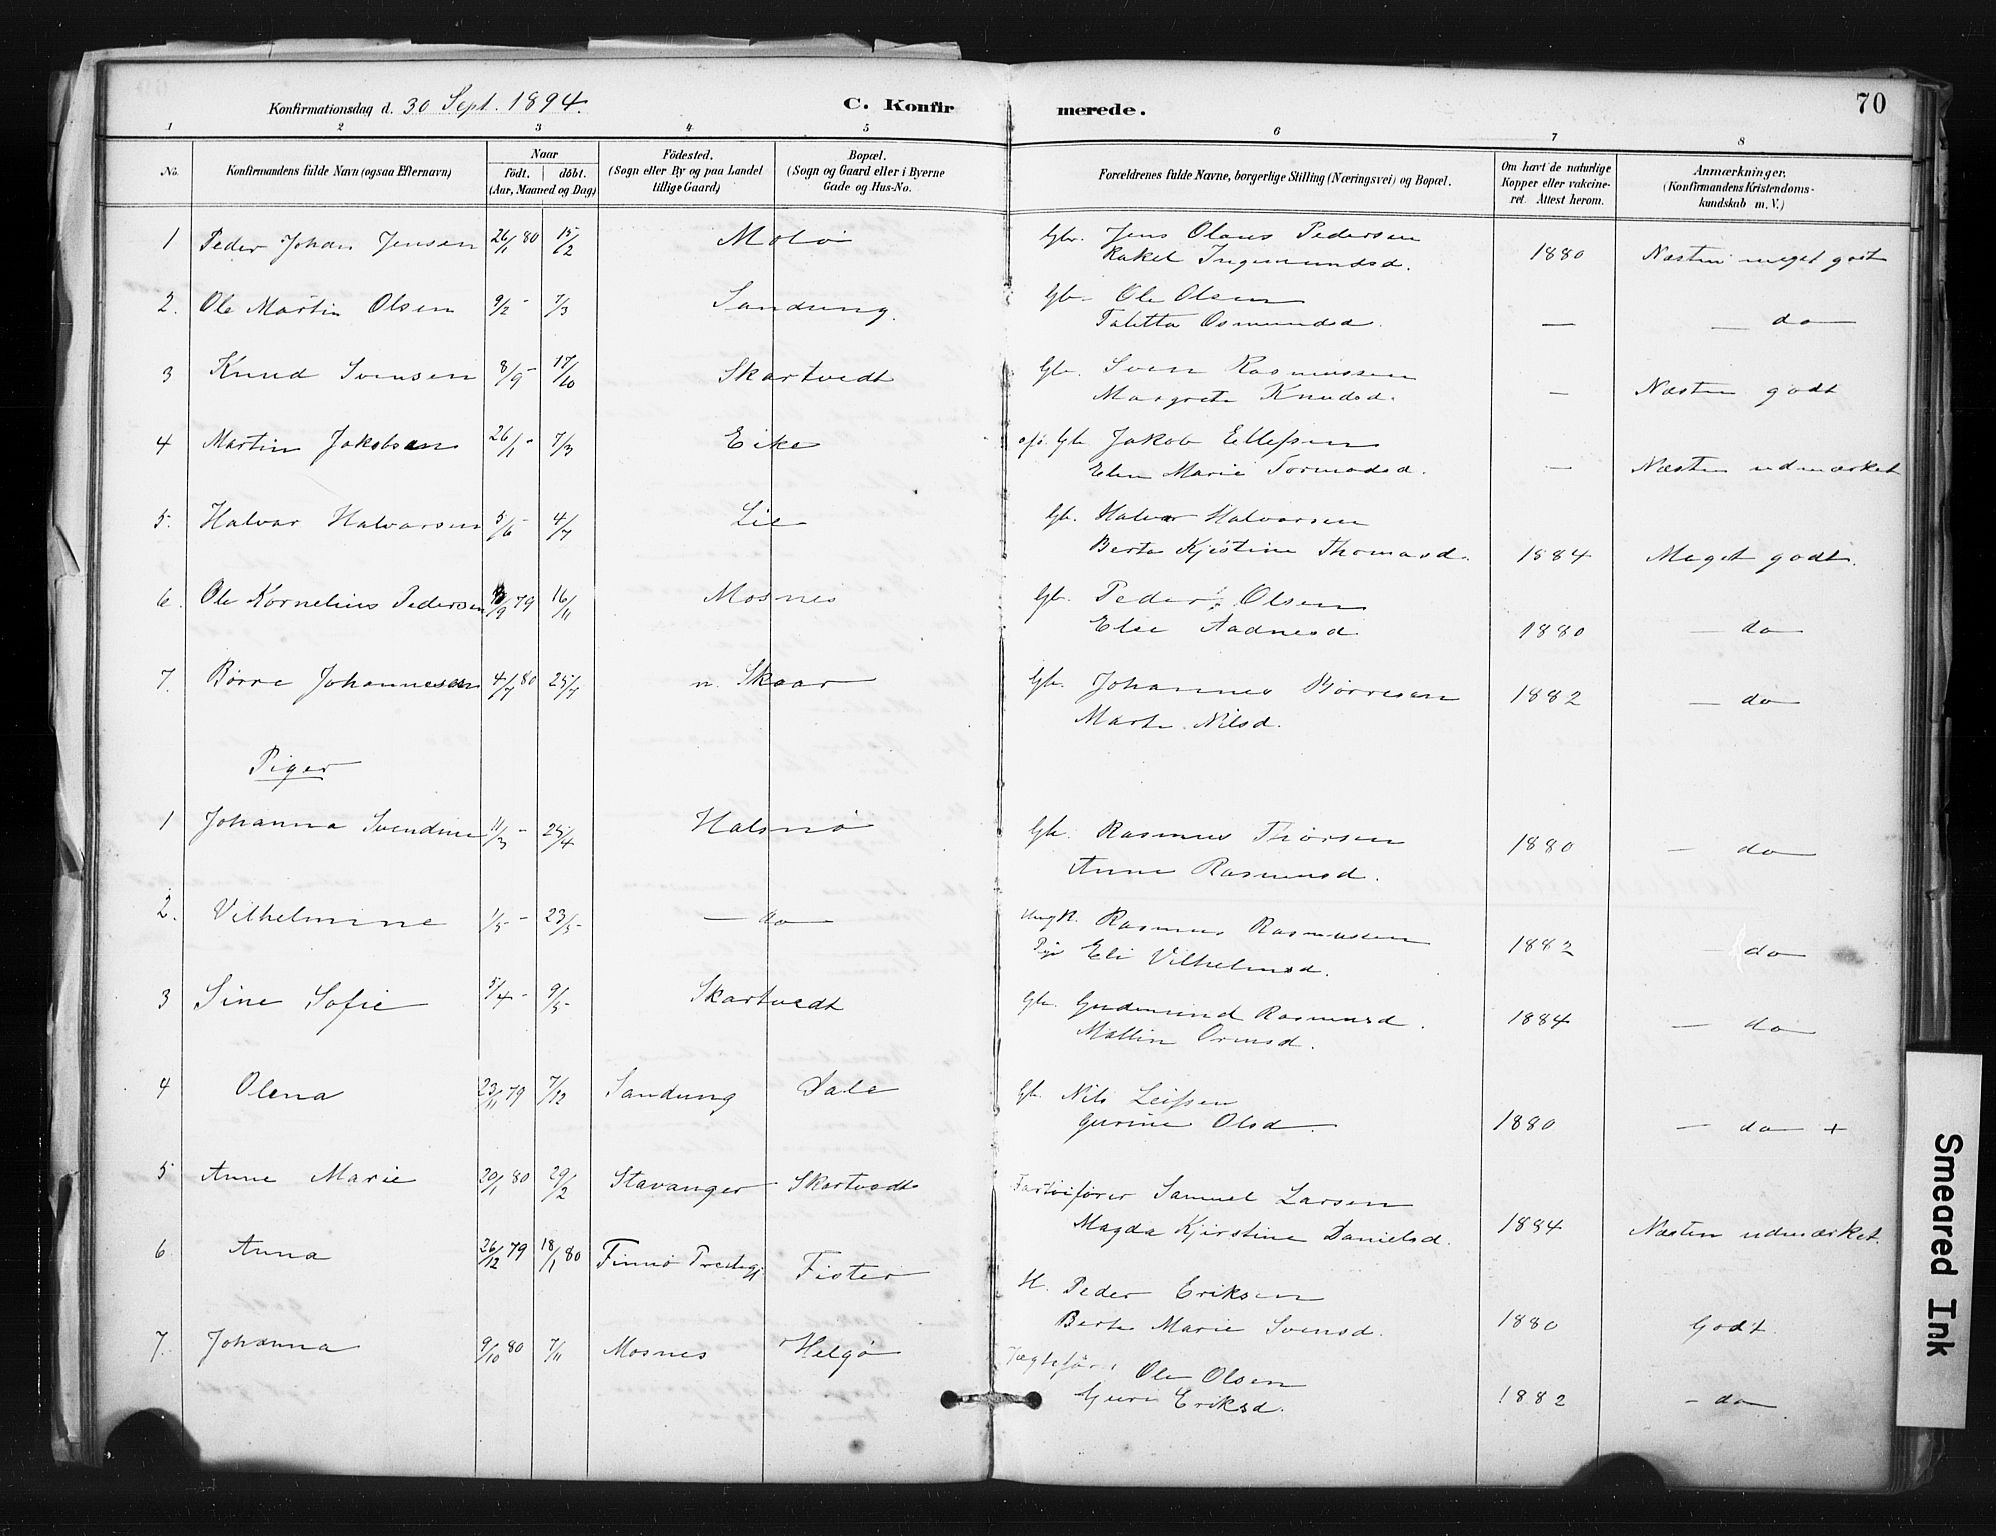 Konfirmationsdag d. 30 Sept. 1894.
C. Konfirmerede.
70
1 2 3 4 5 6 7 8
No.
Konfirmandens fulde Navn (ogsaa Efternavn)
Naar
födt. döbt.
(Aar, Maaned og Dag)
Födested.
(Sogn eller By og paa Landet tillige Gaard)
Bopæl.
(Sogn og Gaard eller i Byerne Gade og Hus-No.
Forældrenes fulde Navne, borgerlige Stilling (Næringsvei) og Bopæl.
Om havt de naturlige Kopper eller vakcineret. Attest herom.
Anmærkninger.
(Konfirmandens Kristendomskundskab m. V.)
1 Peder Johan Jensen 26/1 80 15/2 Molö Gbr. Jens Olaus Pedersen
Rakel Ingemundsd. 1880 Næsten meget godt
2. Ole Martin Olsen 9/2 - 7/3 Sandung. Gb. Ole Olsen
Talitta Osmundsd. — — do —
3 Knud Svensen 8/9 - 17/10 Skartvedt Gb. Sven Rasmussen
Margrete Knudsd. — Næsten godt
4 Martin Jakobsen 26/1 - 7/3 Eike Gb. Jakob Ellefsen
Elen Marie Tormodsd. — Næsten udmærket
5. Halvar Halvarsen 5/6 - 4/7 Lie Gb. Halvar Halvarsen
Berta Kjistine Thomasd. 1884 Meget godt.
6. Ole Kornelius Pedersen /9 79 16/11 Mosnes Gb. Peder Olsen
Else Aadnesd 1880 — do —
7. Børre Johannesen 4/7 80 25/7 n. Skaar Gb. Johannes Børresen
Marte Nilsd. 1882 — do —
Piger
1 Johanna Svendine 11/3 - 25/4 Halsnø Gb. Rasmus Thorsen
Anne Rasmusd. 1880 — do —
2. Vilhelmine 1/5 - 23/5 — do — Ungk. Rasmus Rasmussen
Pige Eli Vilhelmsd. 1882 — do
3 Sine Sofie 5/4 - 9/5 Skartvedt Gb. Gudmund Rasmusd.
Mallin Ormsd. 1884 — do —
4 Olena 23/11 79 7/12 Sandung Dale Gb. Nils Leifsen
Gurine Olsd. 1880 — do — +
5 Anne Marie 20/1 80 29/2 Stavanger Skartvedt Fartöifører Samuel Larsen
Magda Kjirstine Danielsd. 1884 Næsten udmærket.
6 Anna 26/12 79 18/1 80 Finnø Prestegj Fister H. Peder Eriksen
Berta Marie Svensd. 1880 Godt.
7. Johanna 9/10 80 7/11 Mosnes Helgø Jægtefør. Ole Olsen
Guri Eriksd. 1882 — do —
Smeared Ink